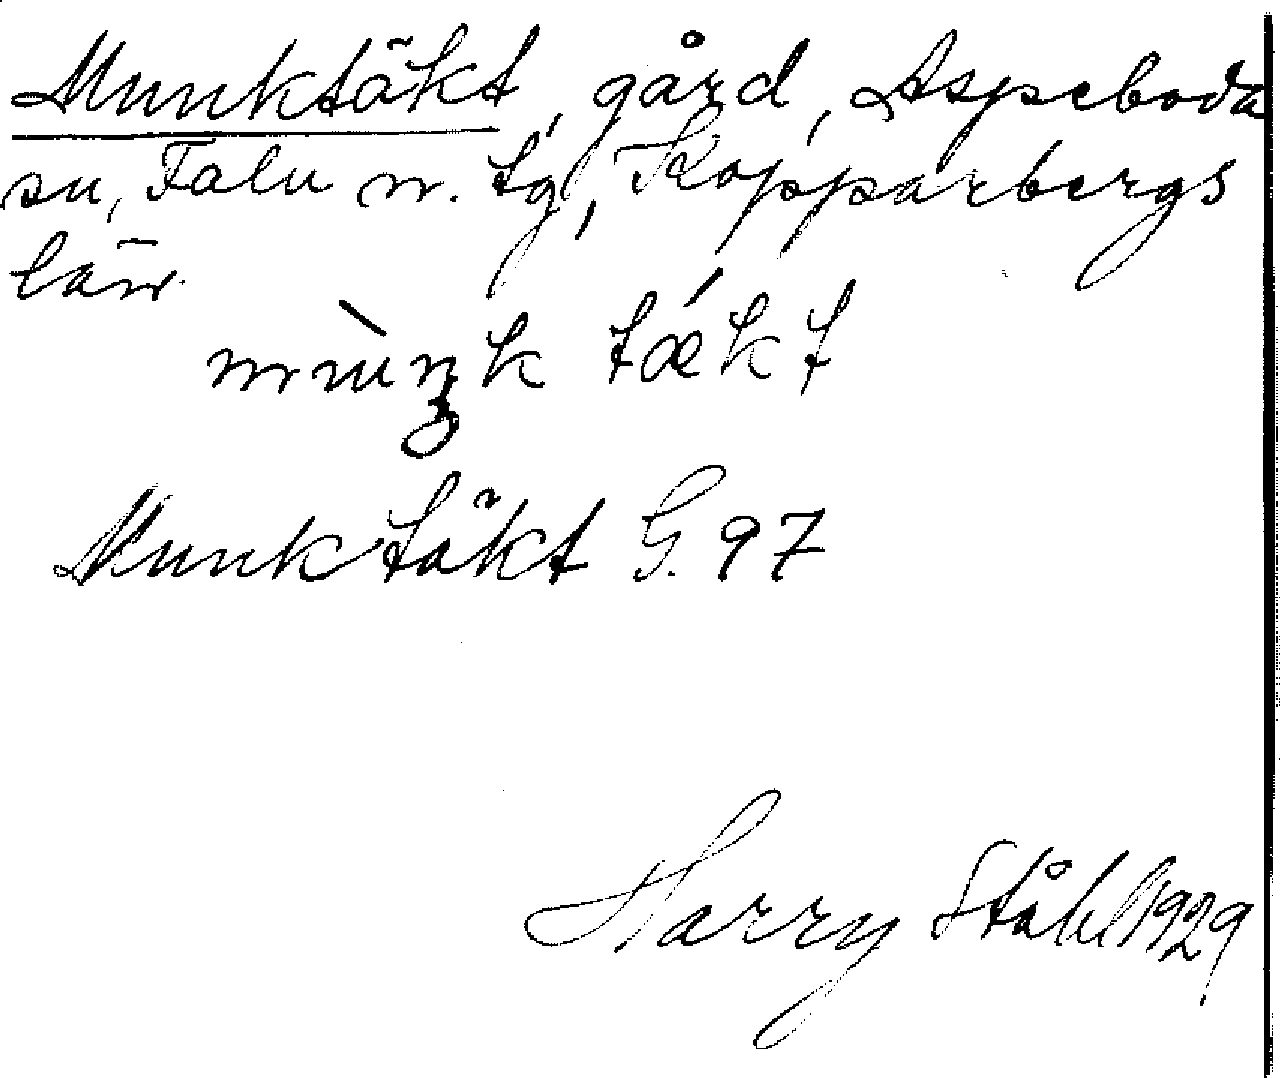 Munktäkt, gård, Aspeboda
sn, Falu n. tg, Kopparbergs
län
mùŋk tǽkt
Munktäkt G. 97
Harry Ståhl 1929